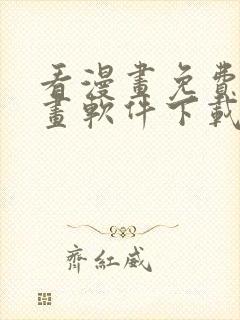 看漫畫免費
畫軟件下載
齊紅威